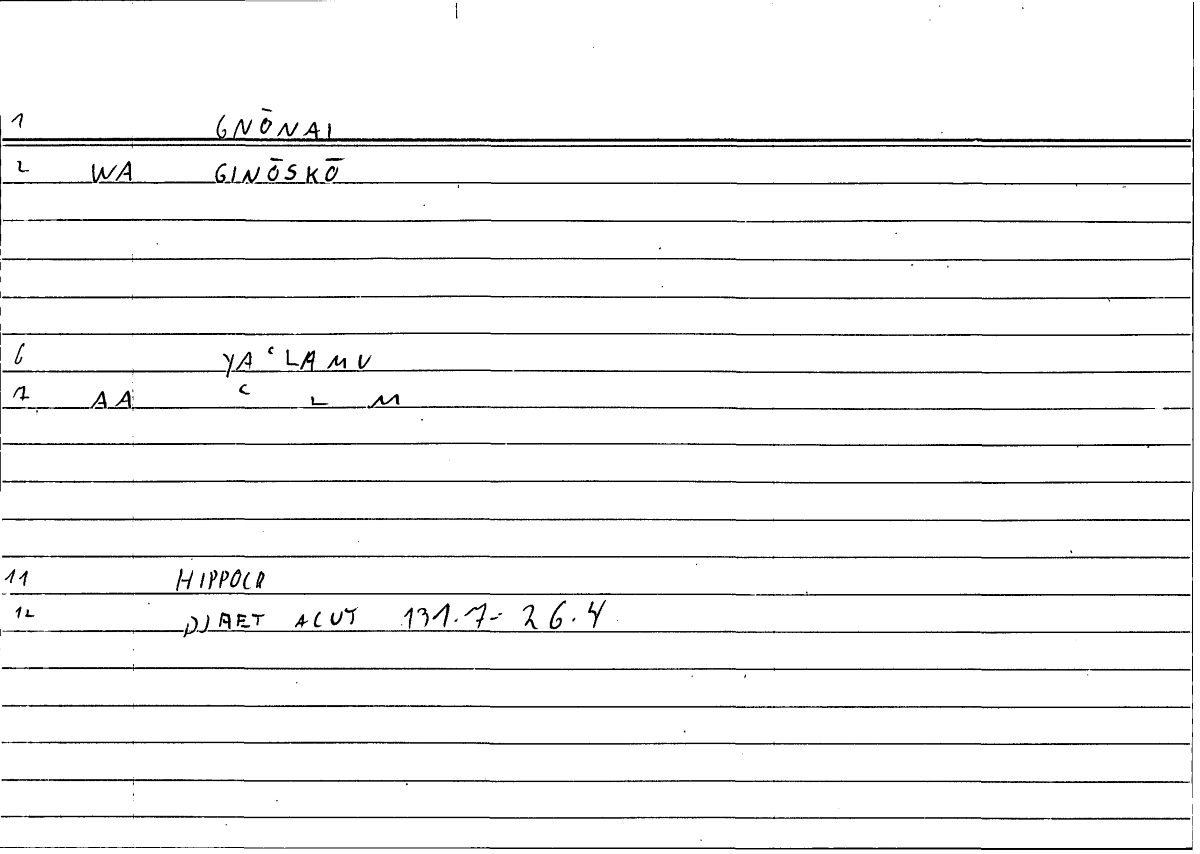 1 GNŌNAI
2 WA GINŌSKŌ
6 YAʿLAMU
7 AA ʿ L M
11 HIPPOCR
12 DIAET ACUT 131.7-26.4